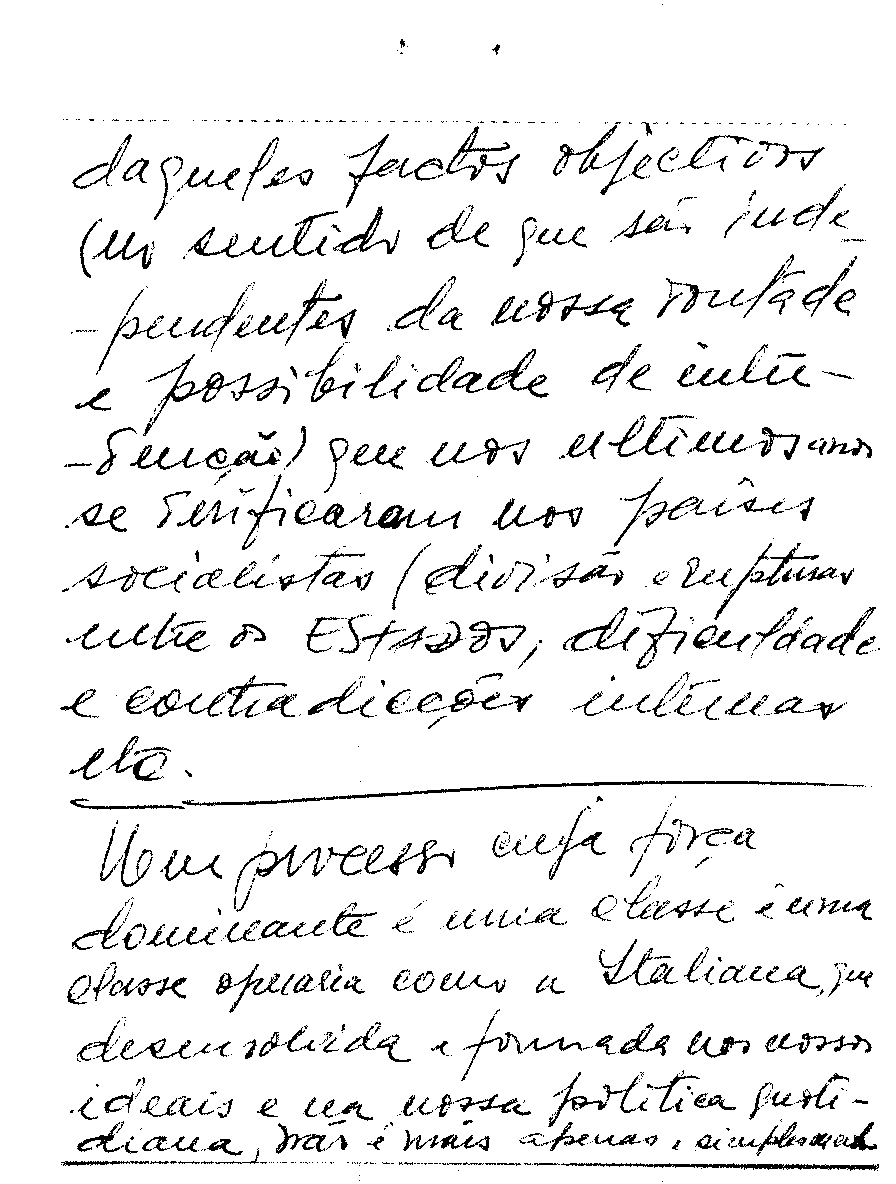 daqueles factos objectivos
(no sentido de que são inde-
-pendentes da nossa vontade
e possibilidade de inter-
-venção) que nos ultimos anos
se verificaram nos países
socialistas (divisão e rupturas
entre os EStADOS, dificuldade
e contradicções internas
etc.
Num processo cuja força
dominante é uma classe e uma
classe operaria como a Italiana, que
desenvolvida e formada nos nossos
ideais e na nossa politica quoti-
diana, não é mais apenas e simplesmente